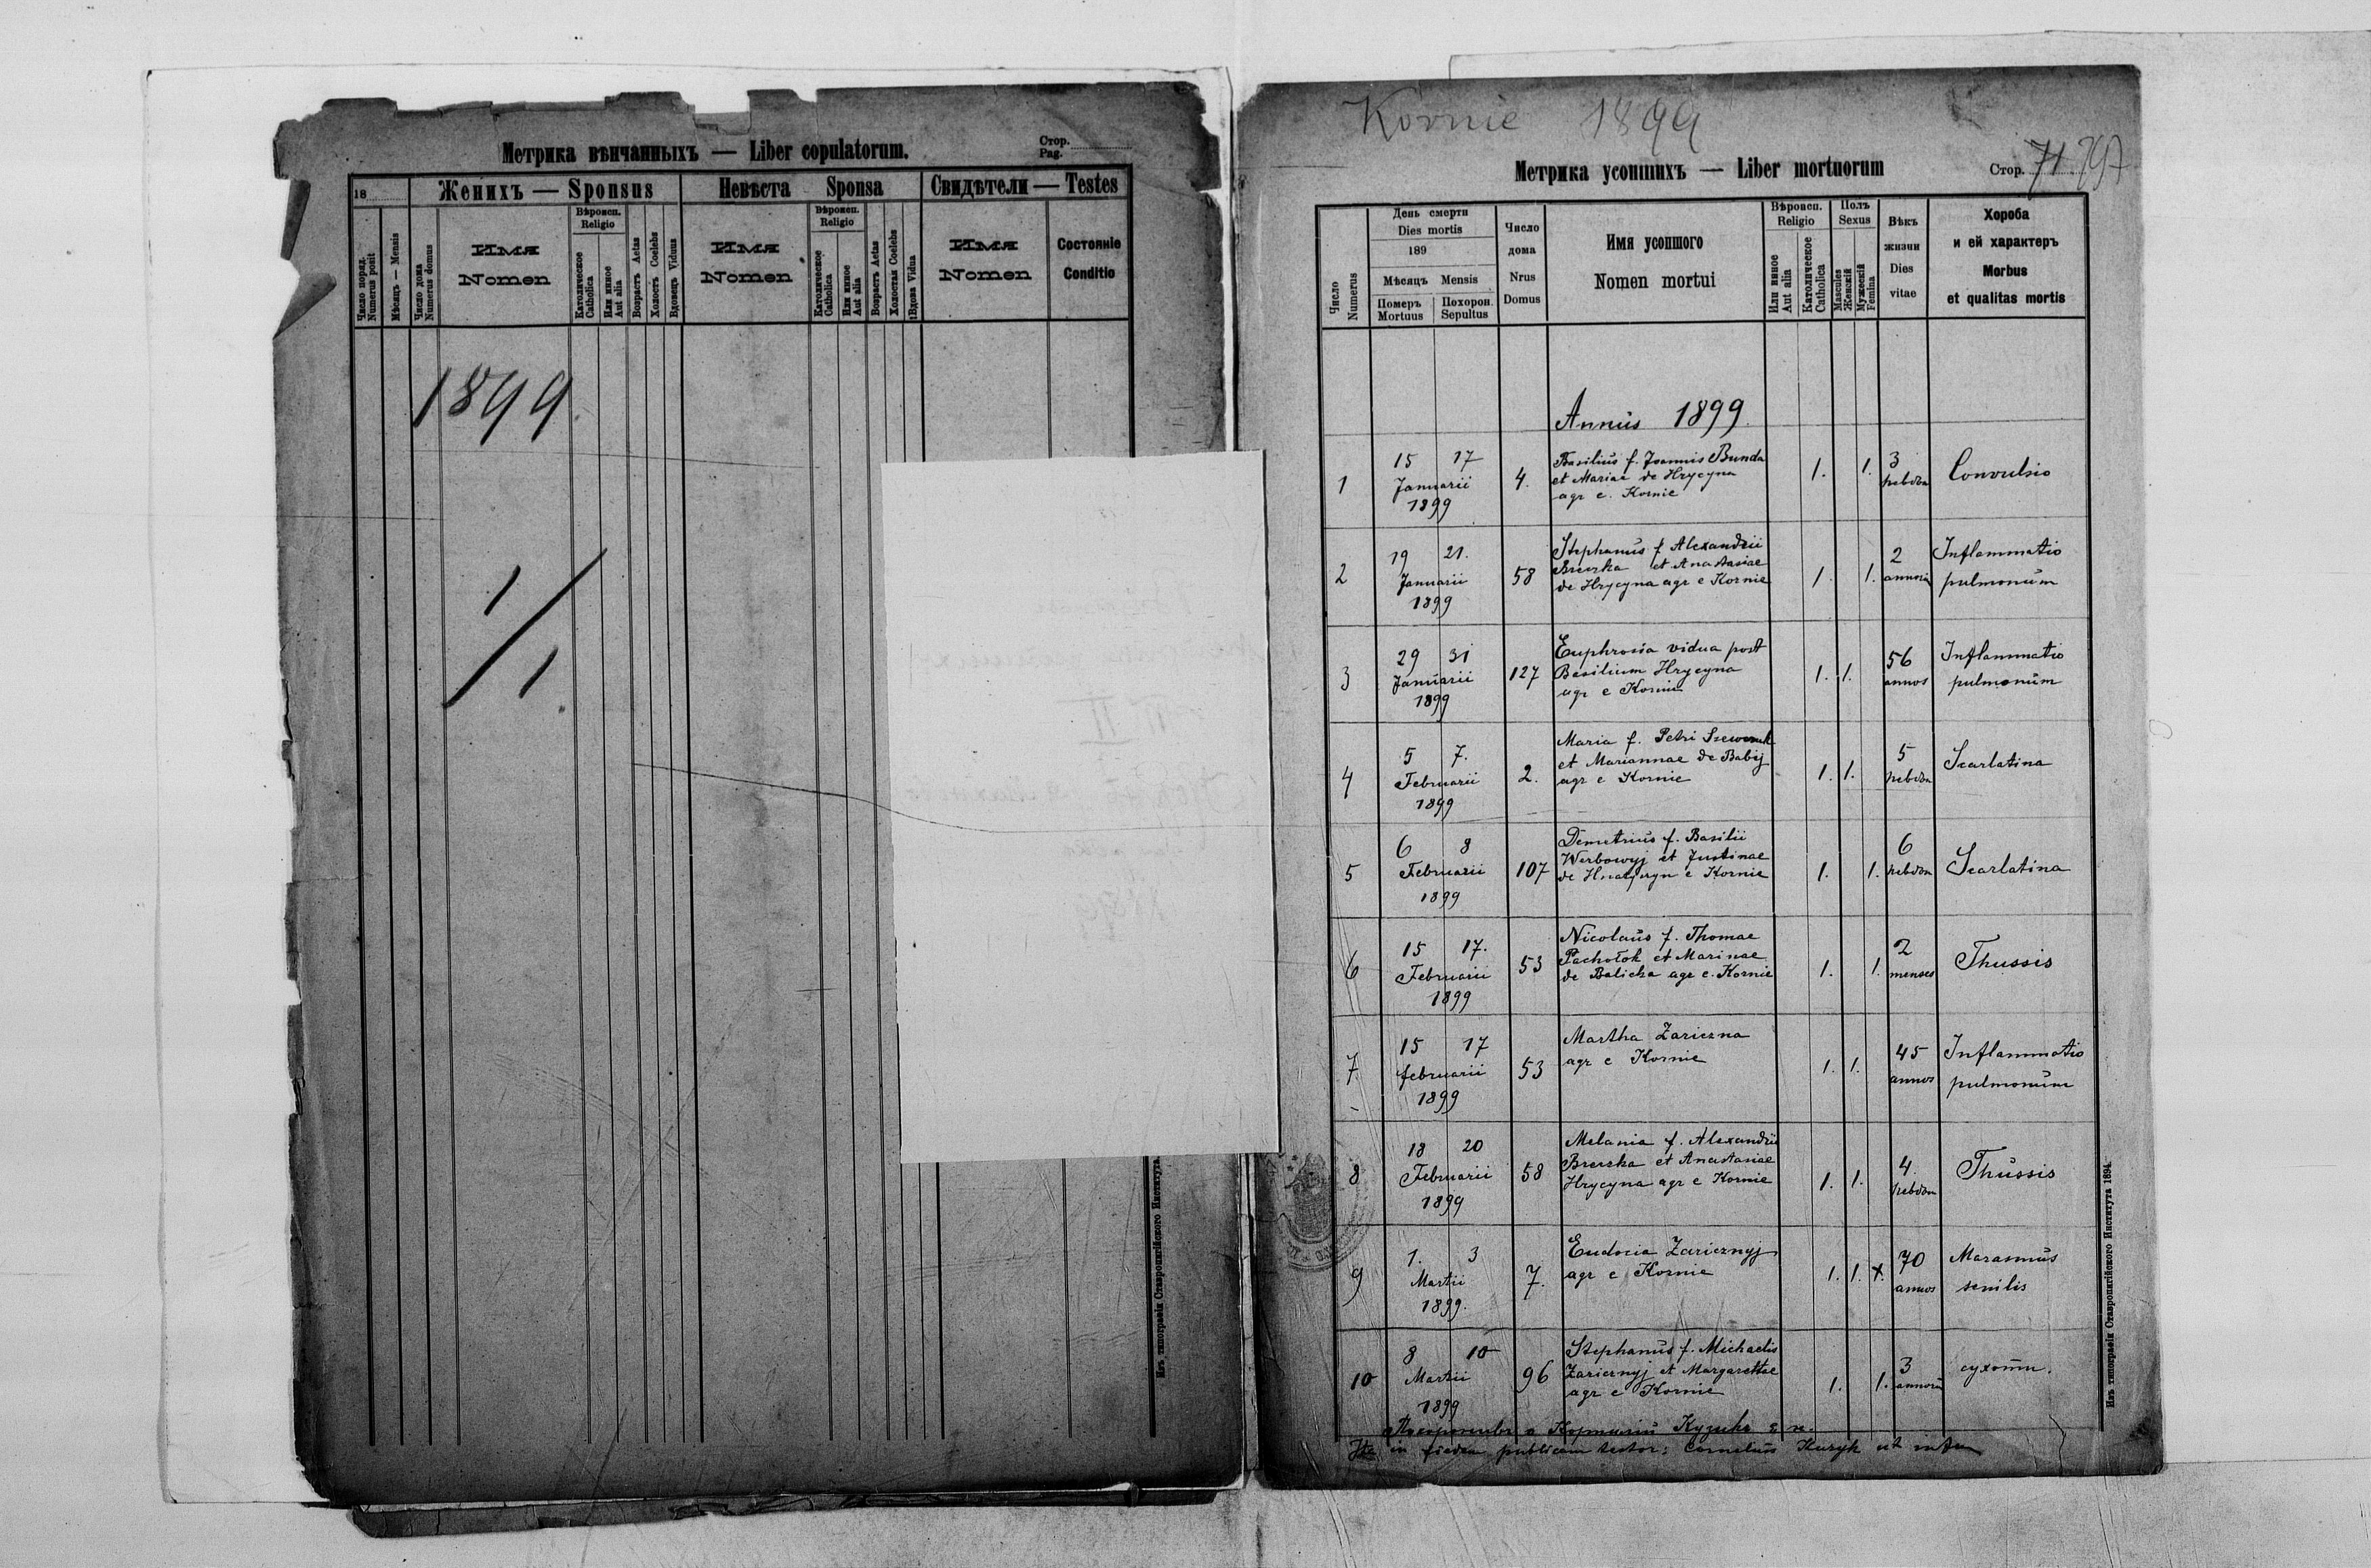 Метрика вѣнчанныхъ — Liber copulatorum.
Стор.
Pag.
18
Женихъ — Sponsus
Невѣста Sponsa
Свидѣтели — Testes
Число поряд.
Numerus posit
Мѣсяцъ — Mensis
Число дома
Numerus domus
Имя
Nomen
Вѣроисп.
Religio
Католическое
Catholica
Или иное
Aut alia
Возрастъ Aetas
Холостъ Coelebs
Вдовецъ Viduus
Имя
Nomen
Вѣроисп.
Religio
Католическое
Catholica
Или иное
Aut alia
Возрастъ Aetas
Холостая Coelebs
Вдова Vidua
Имя
Nomen
Состояніе
Conditio
1899
1/1
Изъ типографіи Ставропигійского Института
Kornie 1899
Метрика усопшихъ — Liber mortuorum
Стор. 71
Число
Numerus
День смерти
Dies mortis
189
Мѣсяцъ Mensis
Померъ
Mortuus
Похорон.
Sepultus
Число
дома
Nrus
Domus
Имя усопшого
Nomen mortui
Вѣроисп.
Religio
Или иное
Aut alia
Католическое
Catholica
Полъ
Sexus
Masculus
Женскій
Мужескій
Femina
Вѣкъ
жизни
Dies
vitae
Хороба
и ей характеръ
Morbus
et qualitas mortis
Annus 1899
1 15 17 Januarii 1899 4.
Basilius f. Joannis Bunda
et Mariae de Hrycyna
agr e. Kornie
1. 1. 3 hebdom Convulsio
2 19 21. Januarii 1899 58
Stephanus f Alexandrii
Brerzka et Anastasiae
de Hrycyna agr e Kornie
1. 1. 2 annorum Inflammatio
pulmonum
3 29 31 Januarii 1899 127
Euphrosia vidua post
Basilium Hrycyna
agr e Kornie
1. 1. 56 annos Inflammatio
pulmonum
4 5 7. Februarii 1899 2.
Maria f. Petri Szewczuk
et Mariannae de Babij
agr e Kornie
1. 1. 5 hebdom Scarlatina
5 6 8 Februarii 1899 107
Demetrius f. Basilii
Werbowyj et Justinae
de e Kornie
1. 1. 6 hebdom Scarlatina
6 15 17. Februarii 1899 53
Nicolaus f. Thomae
Pachołok et Marinae
de Balicka agr e. Kornie
1. 1. 2 menses Thussis
7 15 17 februarii 1899 53
Martha Zariczna
agr e Kornie
1. 1. 45 annos Inflammatio
pulmonum
8 18 20 Februarii 1899 58
Melania f. Alexandrii
Brerzka et Anastasiae
Hrycyna agr e Kornie
1. 1. 4. hebdom Thussis
9 1. 3 Martii 1899. 7.
Eudocia Zaricznyj
agr e Kornie
1. 1. 70 annos Marasmus
senilis
10 8 10 Martii 1899 96
Stephanus f. Michaelis
Zaricznyj et Margarettae
agr e Kornie
1. 1. 3 annorum сухоти.
in fidem publicam testor: Cornelius Kuzyk ut infra
Изъ типографіи Ставропигійского Института 1894.